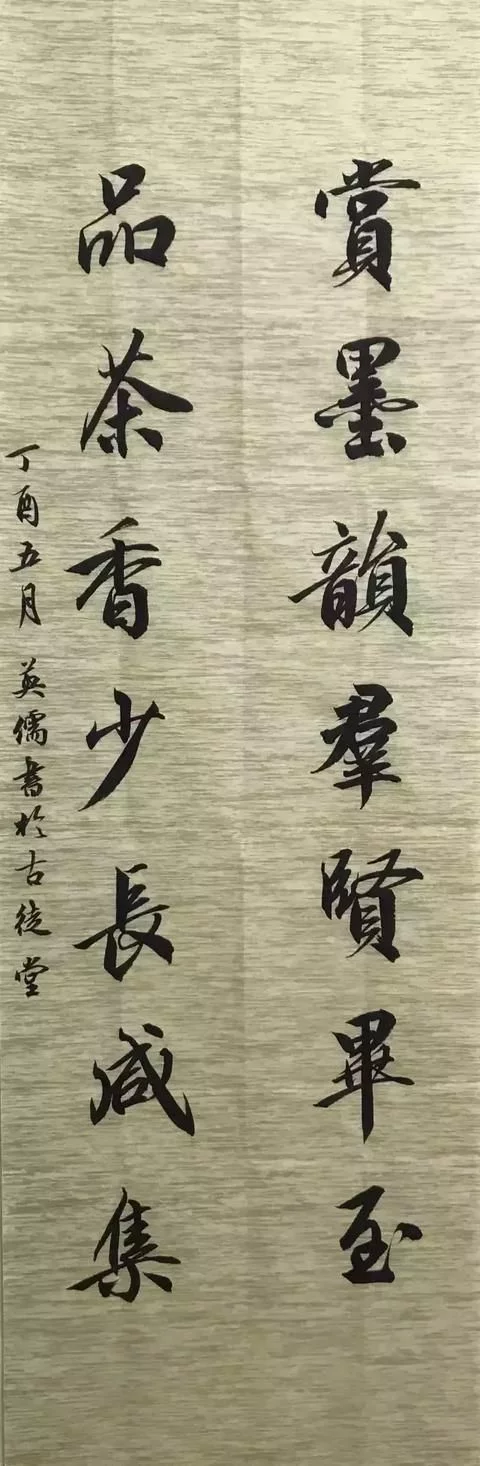 賞墨韻羣賢畢至
品茶香少長咸集
丁酉五月 英儒書於古徒堂